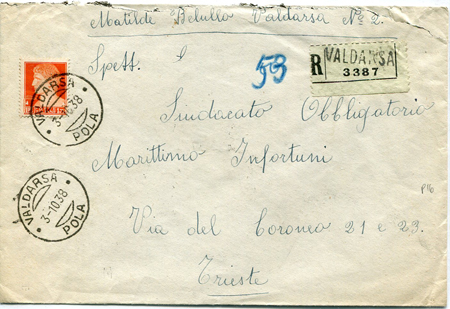 Matilde Belullo Valdarsa No 2.
Spett.
53
R VALDARSA
3387
Sindacato Obbligatorio
Marittimo Infortuni
P16
Via del Coroneo 21 e 23.
Trieste
VALDARSA
3-10.38
POLA
VALDARSA
3-10.38
POLA